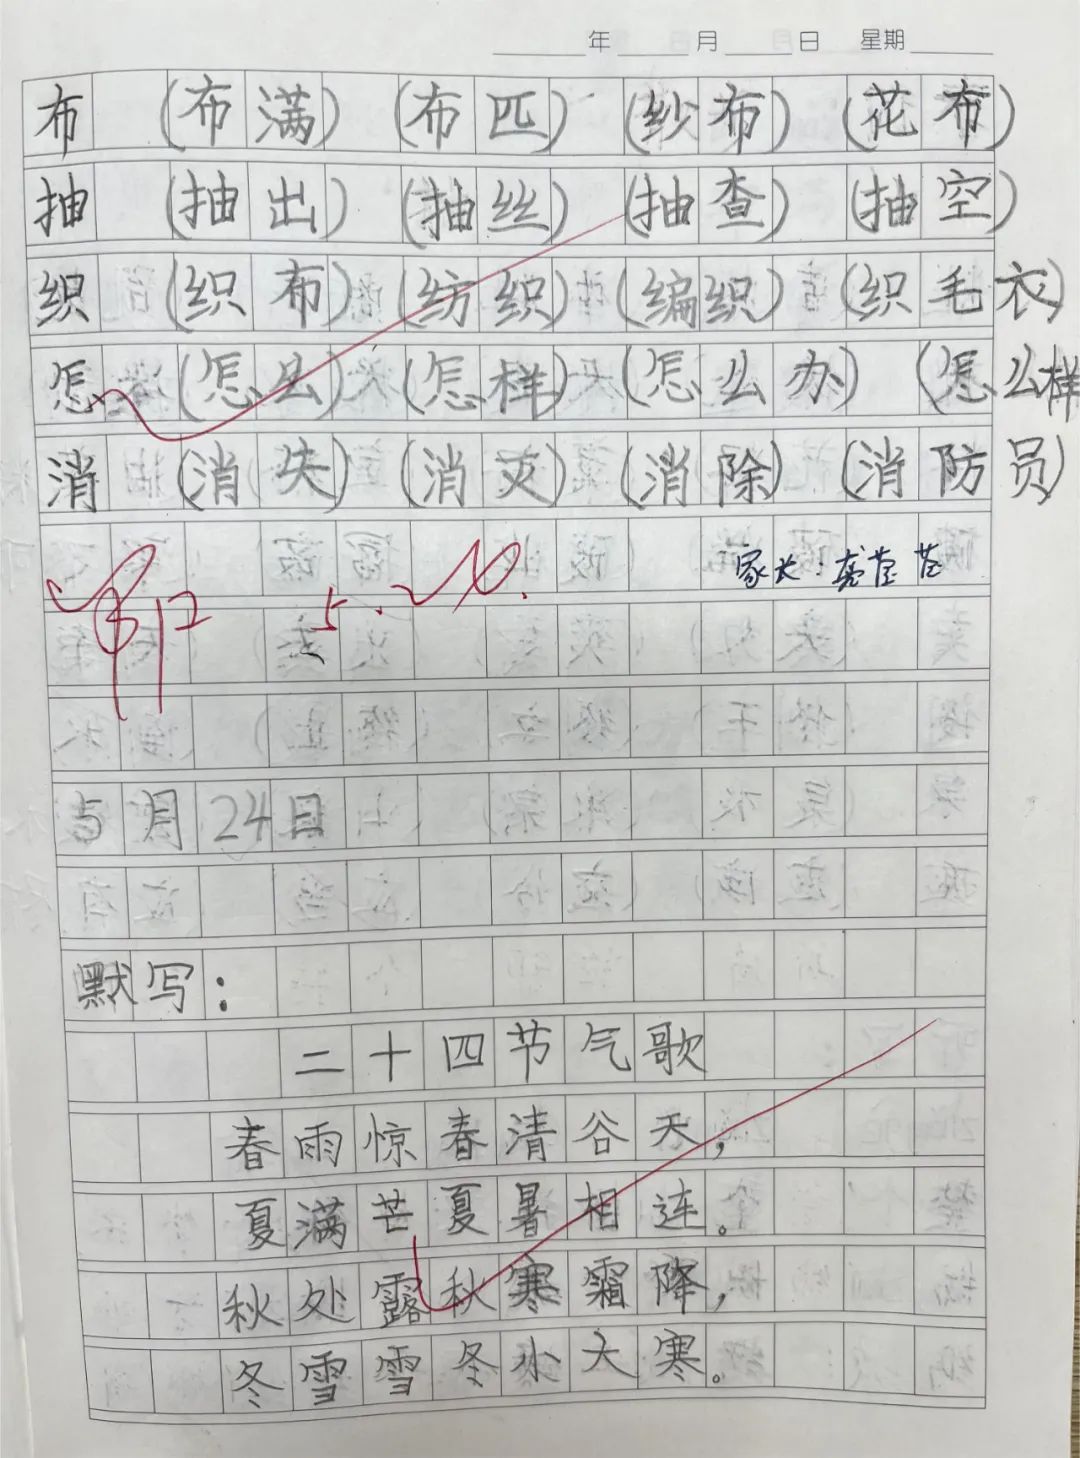 年 月 日 星期
布 (布满) (布匹) (纱布) (花布)
抽 (抽出) (抽丝) (抽查) (抽空)
织 (织布) (纺织) (编织) (织毛衣)
怎 (怎么) (怎样) (怎么办) (怎么样
消 (消失) (消灭) (消除) (消防员)
家长:
5.20.
5月24日
默写:
二十四节气歌
春雨惊春清谷天,
夏满芒夏暑相连。
秋处露秋寒霜降,
冬雪雪冬小大寒。